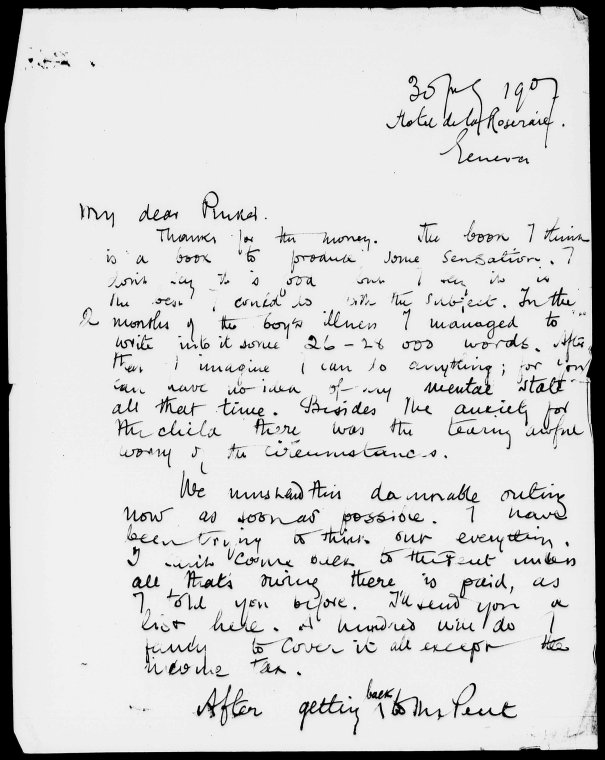 30 July 1907
Hotel de la Roseraie.
Geneva
My dear Pinker.
Thanks for the money. The book I think
is a book to produce some sensation. I
don't say it is good but I say it is
the best I could do with the subject. In the
2 months of the boy's illness I managed to
write into it some 26-28 000 words. After
that I imagine I can do anything; for you
can have no idea of my mental state
all that time. Besides the anxiety for
the child there was the tearing awful
worry of the circumstances.
We must end this damnable outing
now as soon as possible. I have
been trying to think out everything.
I can't come back to the Pent unless
all that's owing there is paid, as
I told you before. I'll send you a
list here. A hundred will do I
fancy to cover it all except the
income tax.
After getting back to the Pent